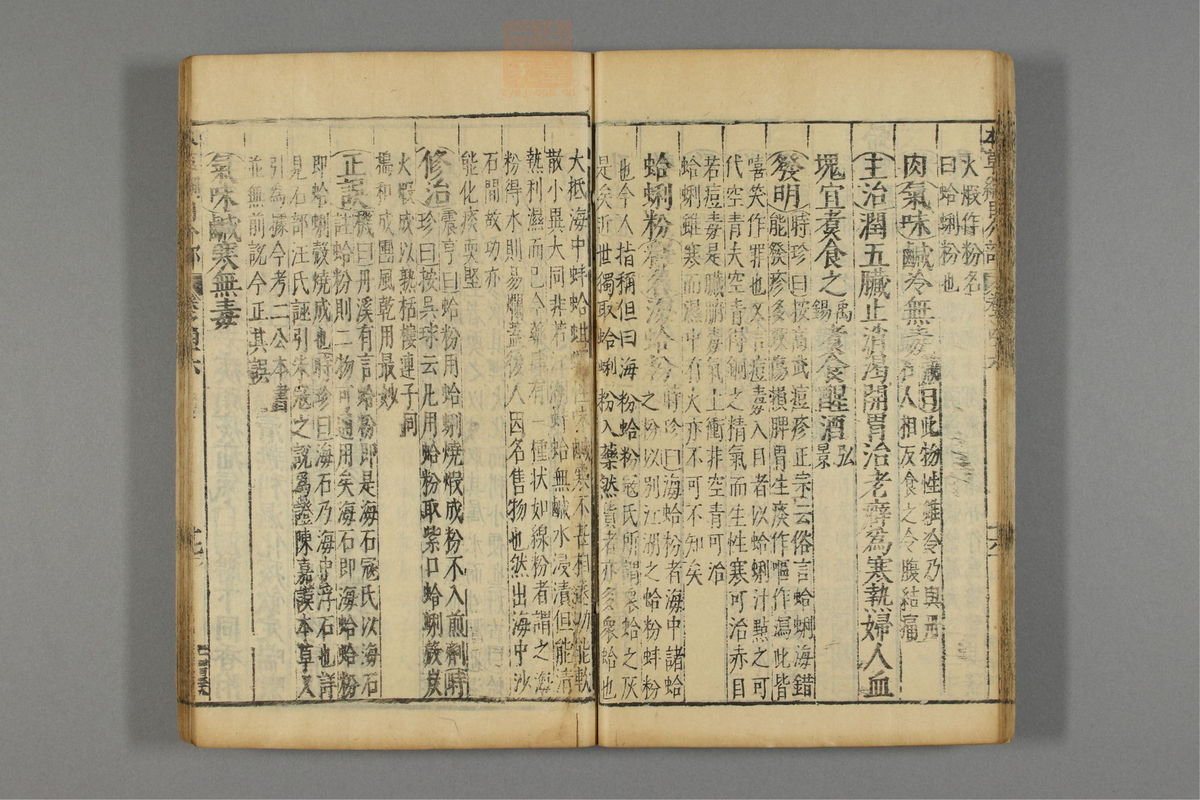 火煅作粉名
曰蛤蜊粉也
肉氣味鹹冷無毒藏器曰此物性雖冷乃與丹
石人相反食之令腹結痛
主治潤五臟止消渴開胃治老癖為寒熱婦人血
塊宜煮食之禹錫煮食醒酒弘景
發明時珍曰按高武痘疹正宗云俗言蛤蜊海錯
能發疹多致傷損脾胃生痰作嘔作瀉此皆
嘻笑作罪也又言痘毒入目者以蛤蜊汁點之可
代空青夫空青得銅之精氣而生性寒可治赤目
若痘毒是臟腑毒氣上衝非空青可治
蛤蜊雖寒而濕中有火亦不可不知矣
蛤蜊粉 海蛤粉時珍曰海蛤粉者海中諸蛤
之粉以別江湖之蛤粉蚌粉
也今人指稱但曰海粉蛤粉寇氏所謂衆蛤之灰
是矣近世獨取蛤蜊粉入藥然貨者亦多衆蛤也
大抵海中蚌蛤蚶蠣性味鹹寒不甚相遠功能軟
散小異大同非若江湖蚌蛤無鹹水浸漬但能清
熱利濕而已今藥肆有一種狀如線粉者謂之海
粉得水則易爛蓋後人因名售物也然出海中沙
石間故功亦
能化痰耎堅
修治震亨曰蛤粉用蛤蜊燒煅成粉不入煎劑時
珍曰按吳球云凡用蛤粉取紫口蛤蜊殼炭
火煅成以熟栝樓連子同
搗和成團風乾用最妙
正誤機曰丹溪有言蛤粉即是海石寇氏以海石
註蛤粉則二物可通用矣海石即海蛤蛤粉
即蛤蜊殼燒成也時珍曰海石乃海中浮石也詳
見石部汪氏誣引朱寇之說為證陳嘉謨本草又
引為據今考二公本書
並無前說今正其誤
氣味鹹寒無毒